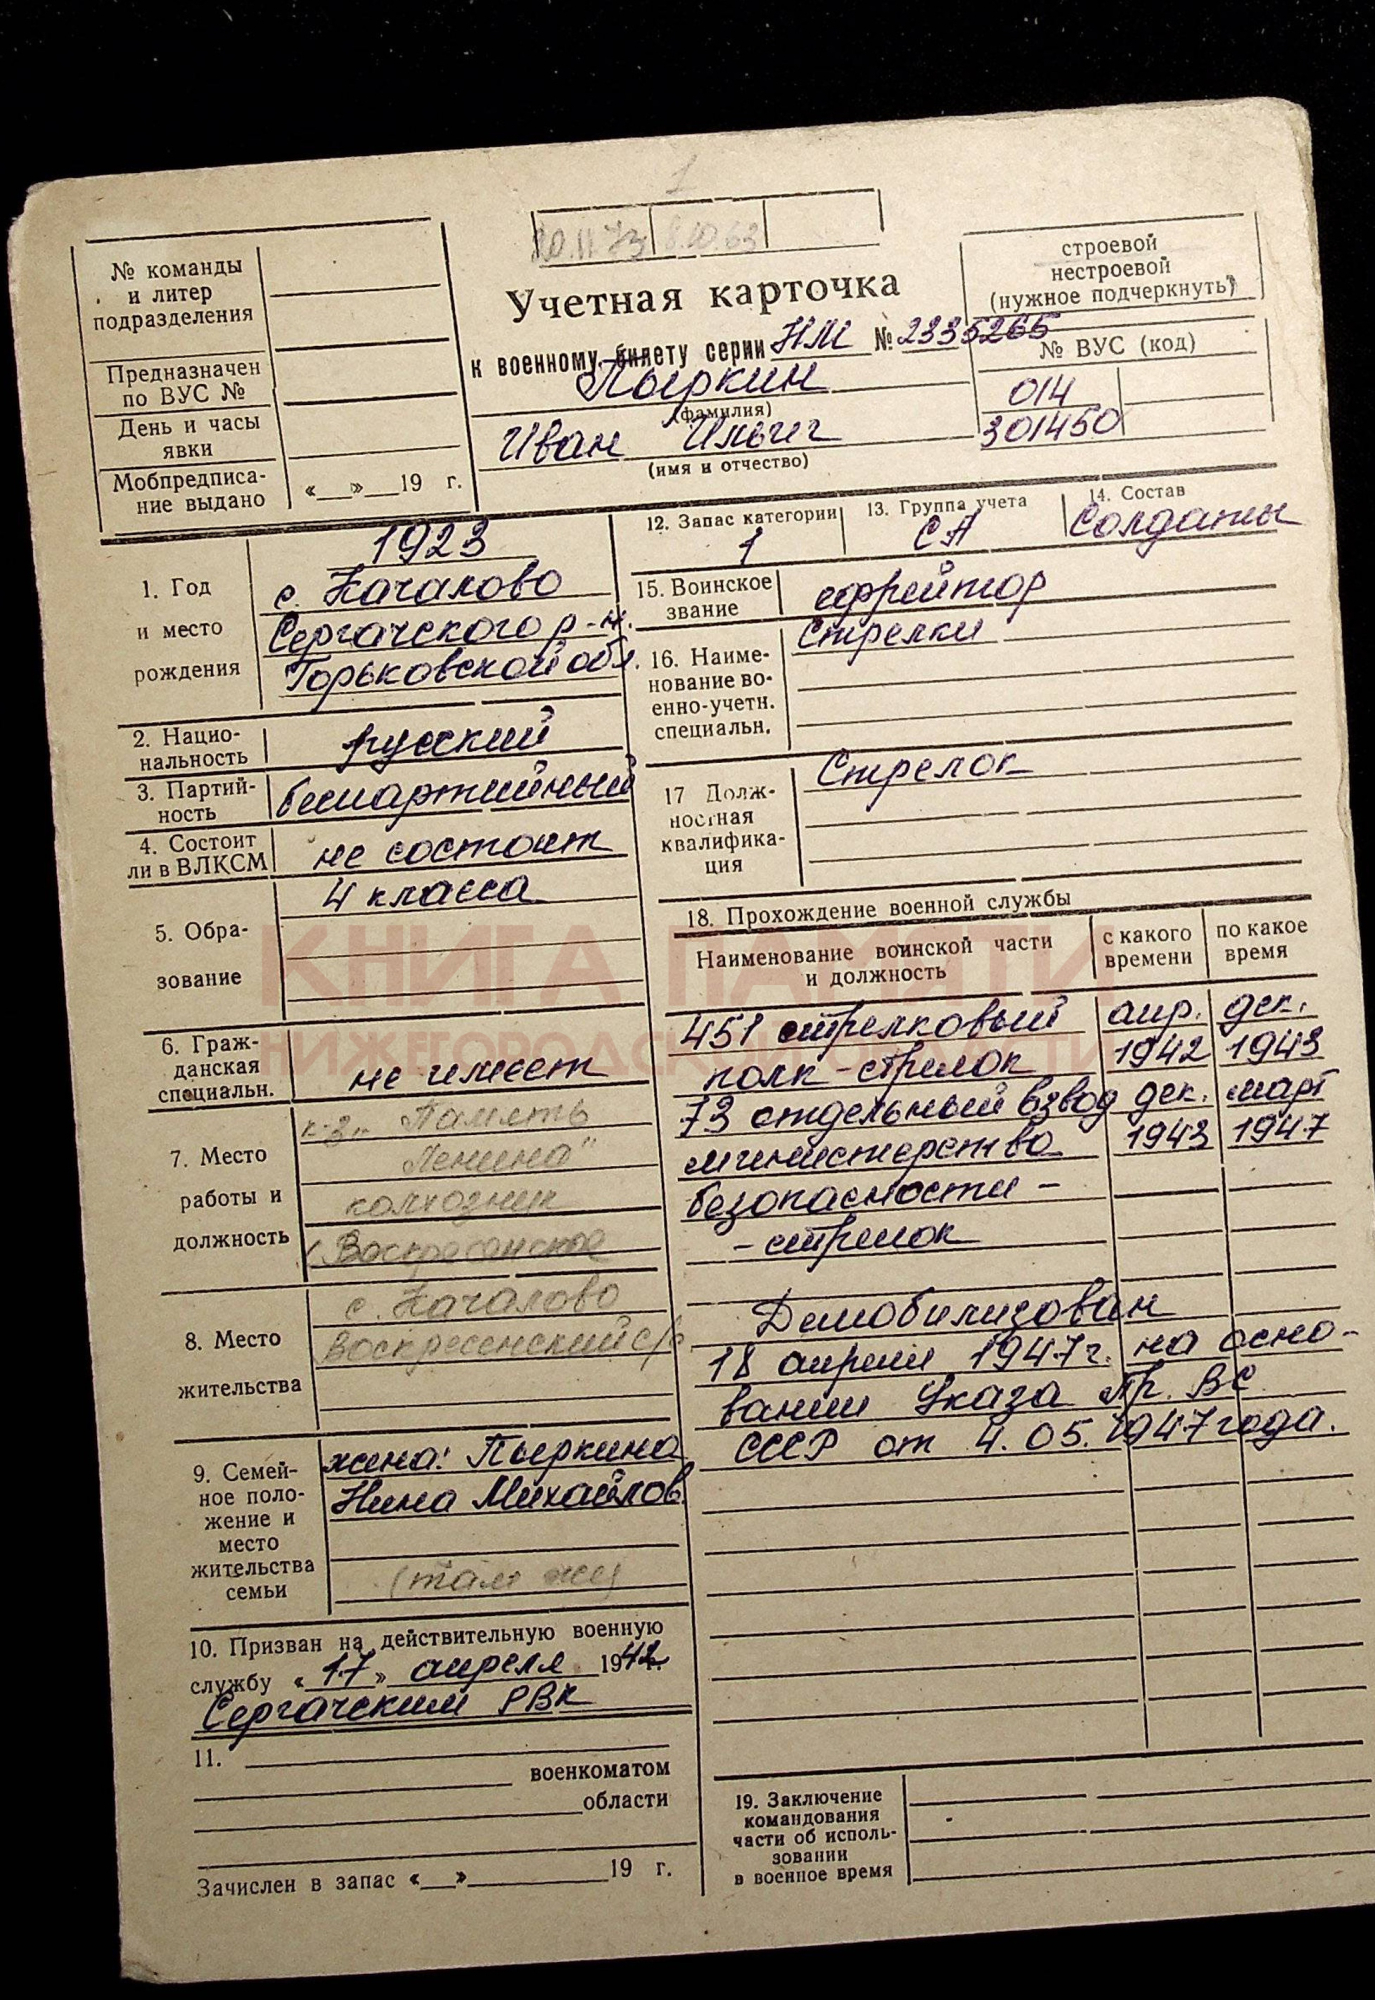 1
20.11.73 8.10.63
№ команды
и литер
подразделения
Предназначен
по ВУС №
День и часы
явки
Мобпредписа-
ние выдано
« » 19 г.
Учетная карточка
к военному билету серии НМ № 2335265
Пыркин
(фамилия)
Иван Ильич
(имя и отчество)
строевой
нестроевой
(нужное подчеркнуть)
№ ВУС (код)
014
301450
1. Год
и место
рождения
1923
с. Качалово
Сергачского р-н.
Горьковской обл.
2. Нацио-
нальность
русский
3. Партий-
ность
беспартийный
4. Состоит
ли в ВЛКСМ
не состоит
5. Обра-
зование
4 класса
6. Граж-
данская
специальн.
не имеет
7. Место
работы и
должность
к-з „Память
Ленина"
колхозник
(Воскресенское
8. Место
жительства
с. Качалово
Воскресенский с/с
9. Семей-
ное поло-
жение и
место
жительства
семьи
жена: Пыркина
Нина Михайлов.
(там же)
10. Призван на действительную военную
службу «17» апреля 1942 г.
Сергачским РВК
11.
военкоматом
области
Зачислен в запас « » 19 г.
12. Запас категории
1
13. Группа учета
СА
14. Состав
Солдаты
15. Воинское
звание
ефрейтор
16. Наиме-
нование во-
енно-учетн.
специальн.
Стрелки
17 Долж-
ностная
квалифика-
ция
Стрелок
18. Прохождение военной службы
Наименование воинской части
и должность
с какого
времени
по какое
время
451 стрелковый апр. дек.
полк - стрелок 1942 1943
73 отдельный взвод дек. март
министерства 1943 1947
безопасности -
- стрелок
Демобилизован
18 апреля 1947 г. на осно-
вании Указа Пр. ВС
СССР от 4.05.1947 года.
19. Заключение
командования
части об исполь-
зовании
в военное время
КНИГА ПАМЯТИ
НИЖЕГОРОДСКОЙ ОБЛАСТИ